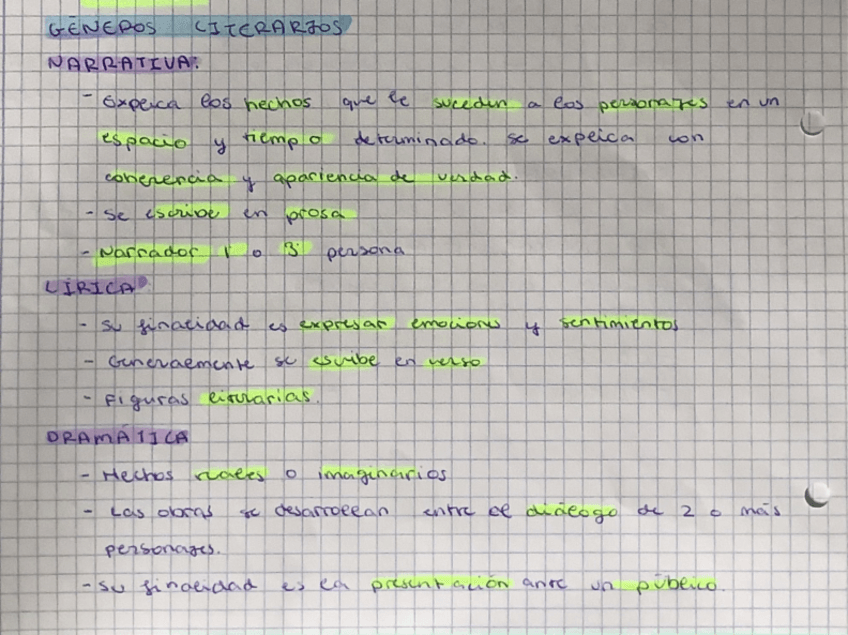 GÉNEROS LITERARIOS
NARRATIVA:
- Explica los hechos que le suceden a los personajes en un
espacio y tiempo determinado. se explica con
coherencia y apariencia de verdad.
- se escribe en prosa
- Narrador 1ª o 3ª persona
LÍRICA
- Su finalidad es expresar emociones y sentimientos
- Generalmente se escribe en verso
- Figuras literarias.
DRAMÁTICA
- Hechos reales o imaginarios
- Las obras se desarrollan entre el diálogo de 2 o más
personajes.
- Su finalidad es la presentación ante un público.